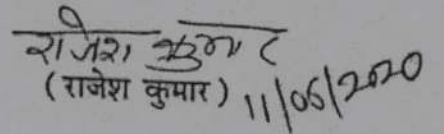 राजेश कुमार
(राजेश कुमार) 11/06/2020